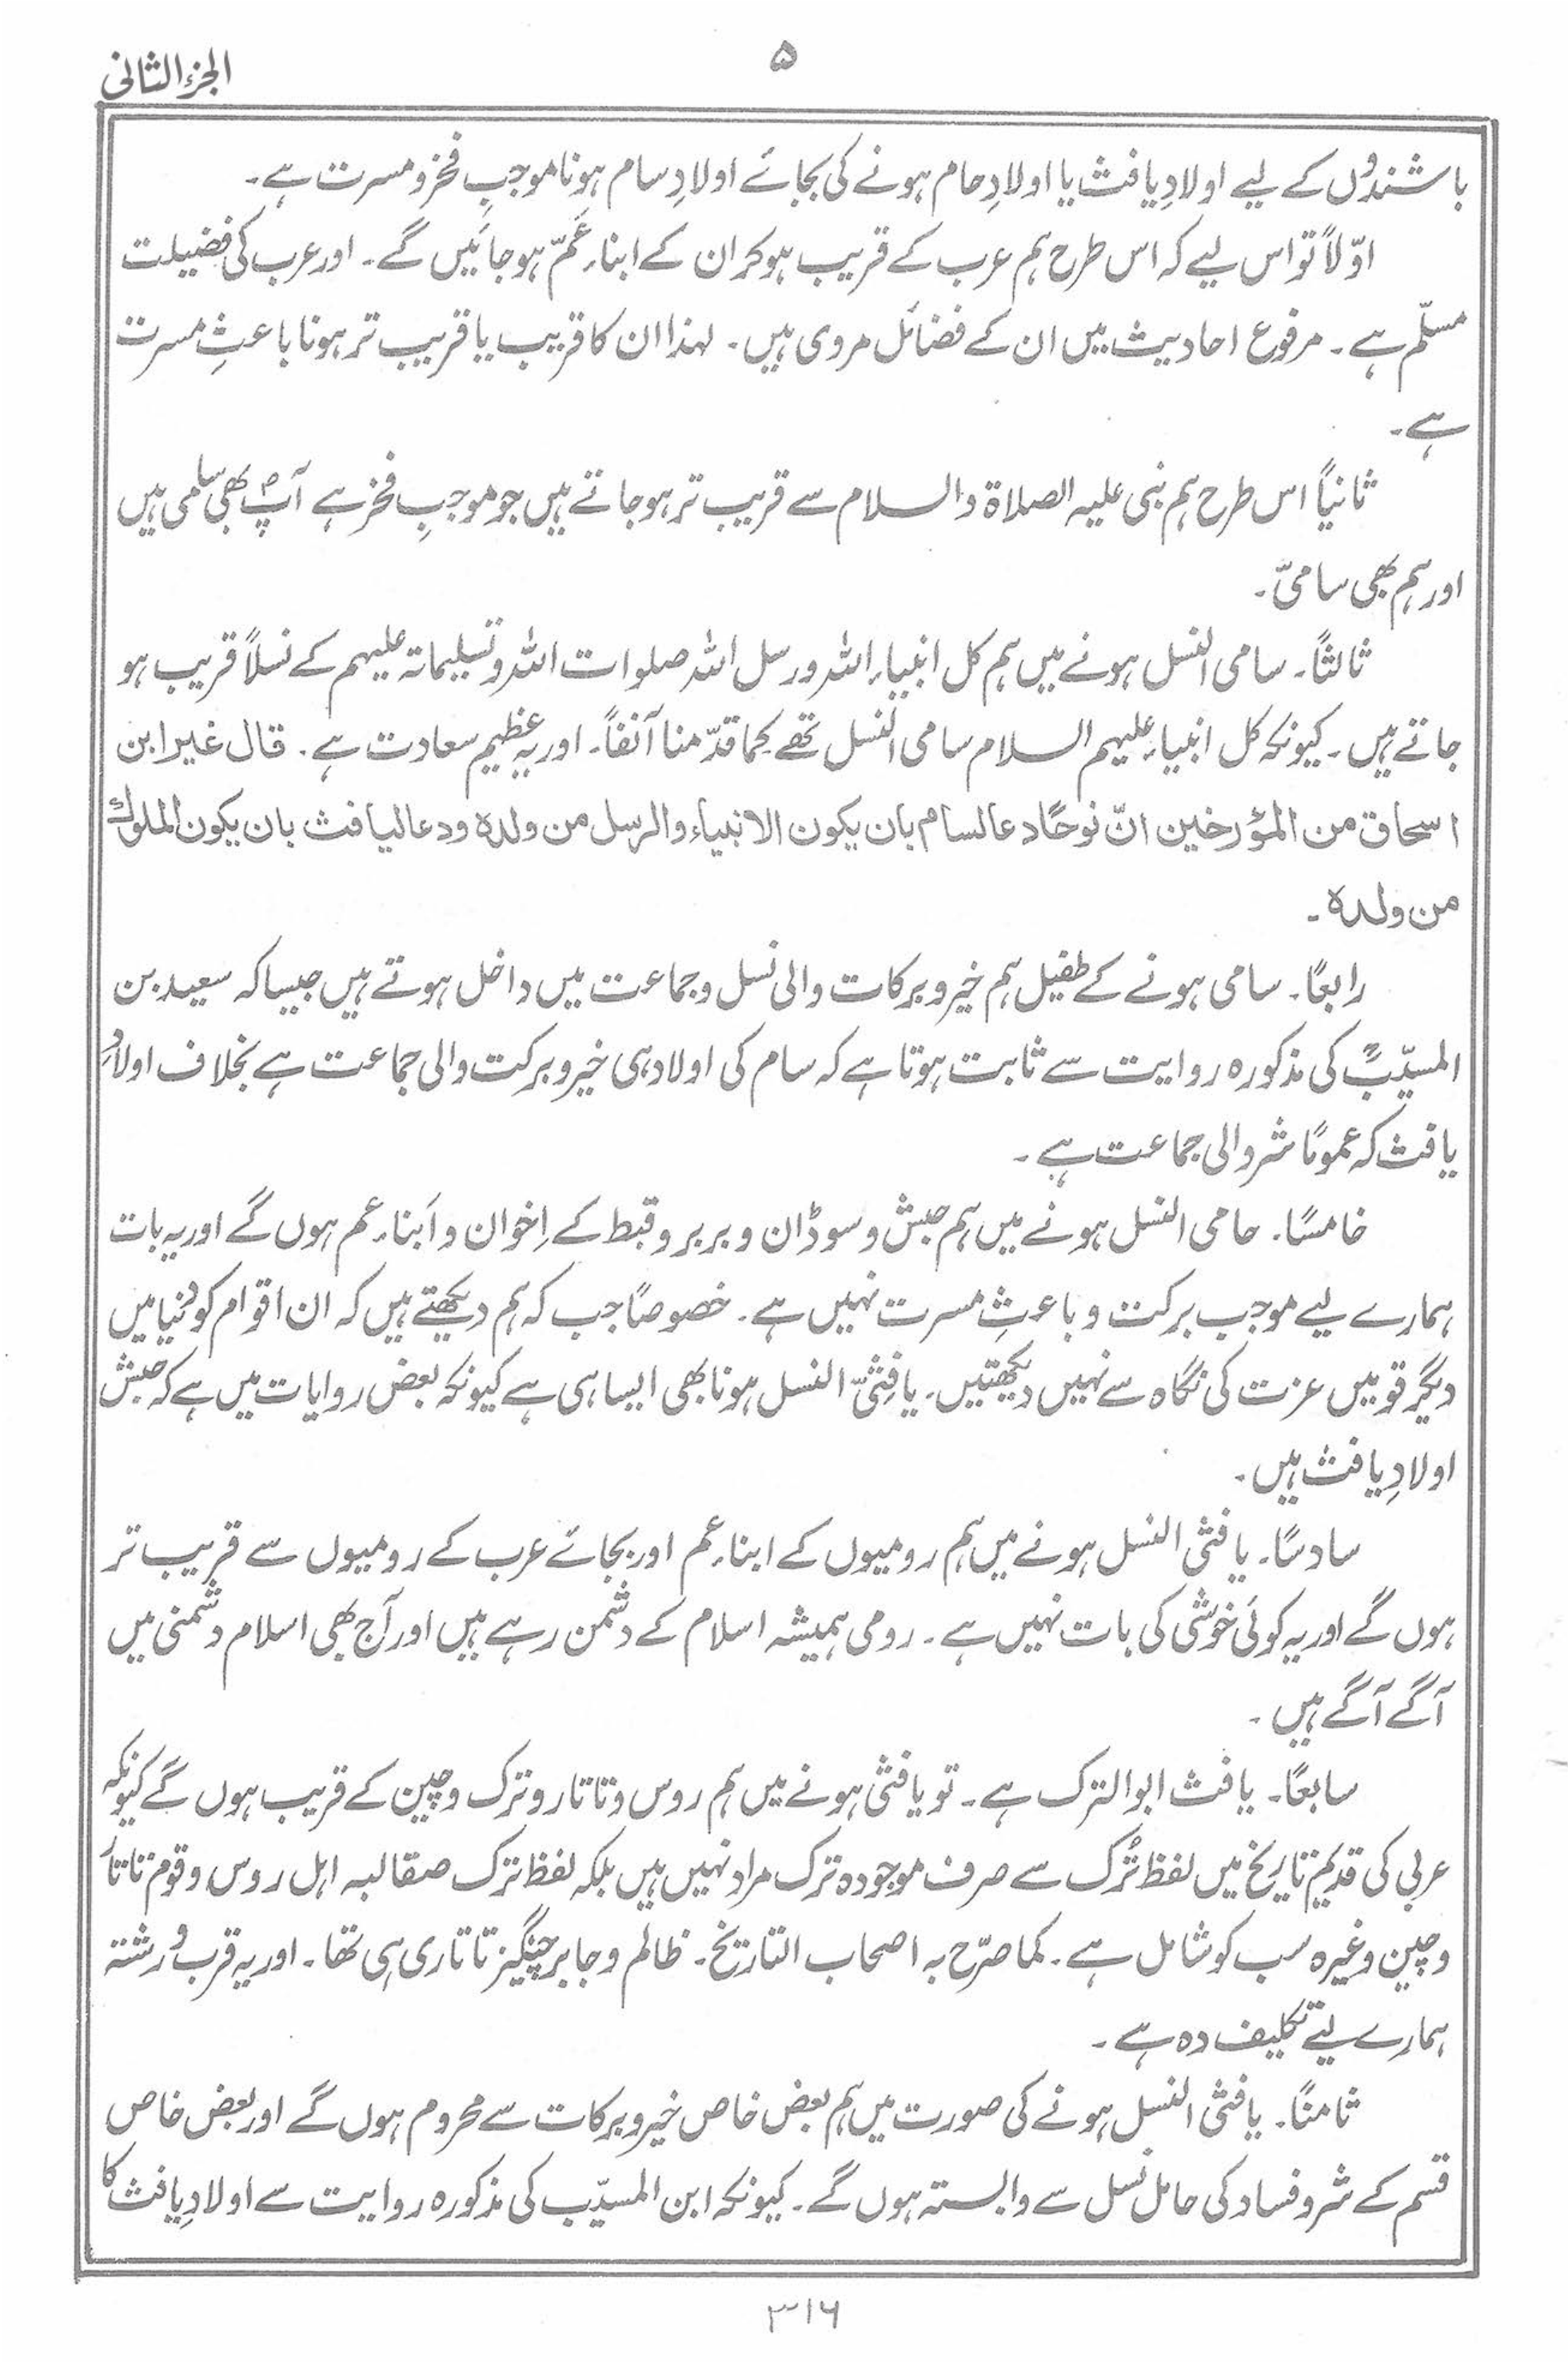 ۵
الجزء الثانی
باشندوں کے لیے اولادِ یافث یا اولادِ حام ہونے کی بجائے اولادِ سام ہونا موجبِ فخر و مسرت ہے۔
اوّلاً تو اس لیے کہ اس طرح ہم عرب کے قریب ہو کر ان کے ابناء عَمّ ہو جائیں گے۔ اور عرب کی فضیلت
مسلّم ہے۔ مرفوع احادیث میں ان کے فضائل مروی ہیں۔ لہذا ان کا قریب یا قریب تر ہونا باعثِ مسرت
ہے۔
ثانیاً اس طرح ہم نبی علیہ الصلاۃ والسلام سے قریب تر ہو جاتے ہیں جو موجبِ فخر ہے آپؐ بھی سامی ہیں
اور ہم بھی سامیّ۔
ثالثاً۔ سامی النسل ہونے میں ہم کل انبیاء اللہ ورسل اللہ صلوات اللہ وتسلیماتہ علیہم کے نسلاً قریب ہو
جاتے ہیں۔ کیونکہ کل انبیاء علیہم السلام سامی النسل تھے کما قدّمنا آنفاً۔ اور یہ عظیم سعادت ہے۔ قال غیر ابن
اسحاق من المؤرخین انّ نوحًا دعا لسام بان یکون الانبیاء والرسل من ولدہ ودعا لیافث بان یکون الملوک
من ولدہ۔
رابعًا۔ سامی ہونے کے طفیل ہم خیر و برکات والی نسل و جماعت میں داخل ہوتے ہیں جیسا کہ سعید بن
المسیّبؒ کی مذکورہ روایت سے ثابت ہوتا ہے کہ سام کی اولاد ہی خیر و برکت والی جماعت ہے بخلاف اولادِ
یافث کہ عمومًا شر والی جماعت ہے۔
خامسًا۔ حامی النسل ہونے میں ہم حبش و سوڈان و بربر و قبط کے اِخوان و اَبناء عم ہوں گے اور یہ بات
ہمارے لیے موجب برکت و باعثِ مسرت نہیں ہے۔ خصوصًا جب کہ ہم دیکھتے ہیں کہ ان اقوام کو دنیا میں
دیگر قومیں عزت کی نگاہ سے نہیں دیکھتیں۔ یافِثیّ النسل ہونا بھی ایسا ہی ہے کیونکہ بعض روایات میں ہے کہ حبش
اولادِ یافث ہیں۔
سادسًا۔ یافثی النسل ہونے میں ہم رومیوں کے ابناء عم اور بجائے عرب کے رومیوں سے قریب تر
ہوں گے اور یہ کوئی خوشی کی بات نہیں ہے۔ رومی ہمیشہ اسلام کے دشمن رہے ہیں اور آج بھی اسلام دشمنی میں
آگے آگے ہیں۔
سابعًا۔ یافث ابوالترک ہے۔ تو یافثی ہونے میں ہم روس و تاتار و ترک و چین کے قریب ہوں گے کیونکہ
عربی کی قدیم تاریخ میں لفظ تُرک سے صرف موجودہ ترک مراد نہیں ہیں بلکہ لفظ ترک صقالبہ اہل روس و قوم تاتار
و چین وغیرہ سب کو شامل ہے۔ کما صرّح بہ اصحاب التاریخ۔ ظالم و جابر چنگیز تاتاری ہی تھا۔ اور یہ قرب و رشتہ
ہمارے لیے تکلیف دہ ہے۔
ثامنًا۔ یافثی النسل ہونے کی صورت میں ہم بعض خاص خیر و برکات سے محروم ہوں گے اور بعض خاص
قسم کے شر و فساد کی حامل نسل سے وابستہ ہوں گے۔ کیونکہ ابن المسیّب کی مذکورہ روایت سے اولادِ یافث کا
۳۱۶